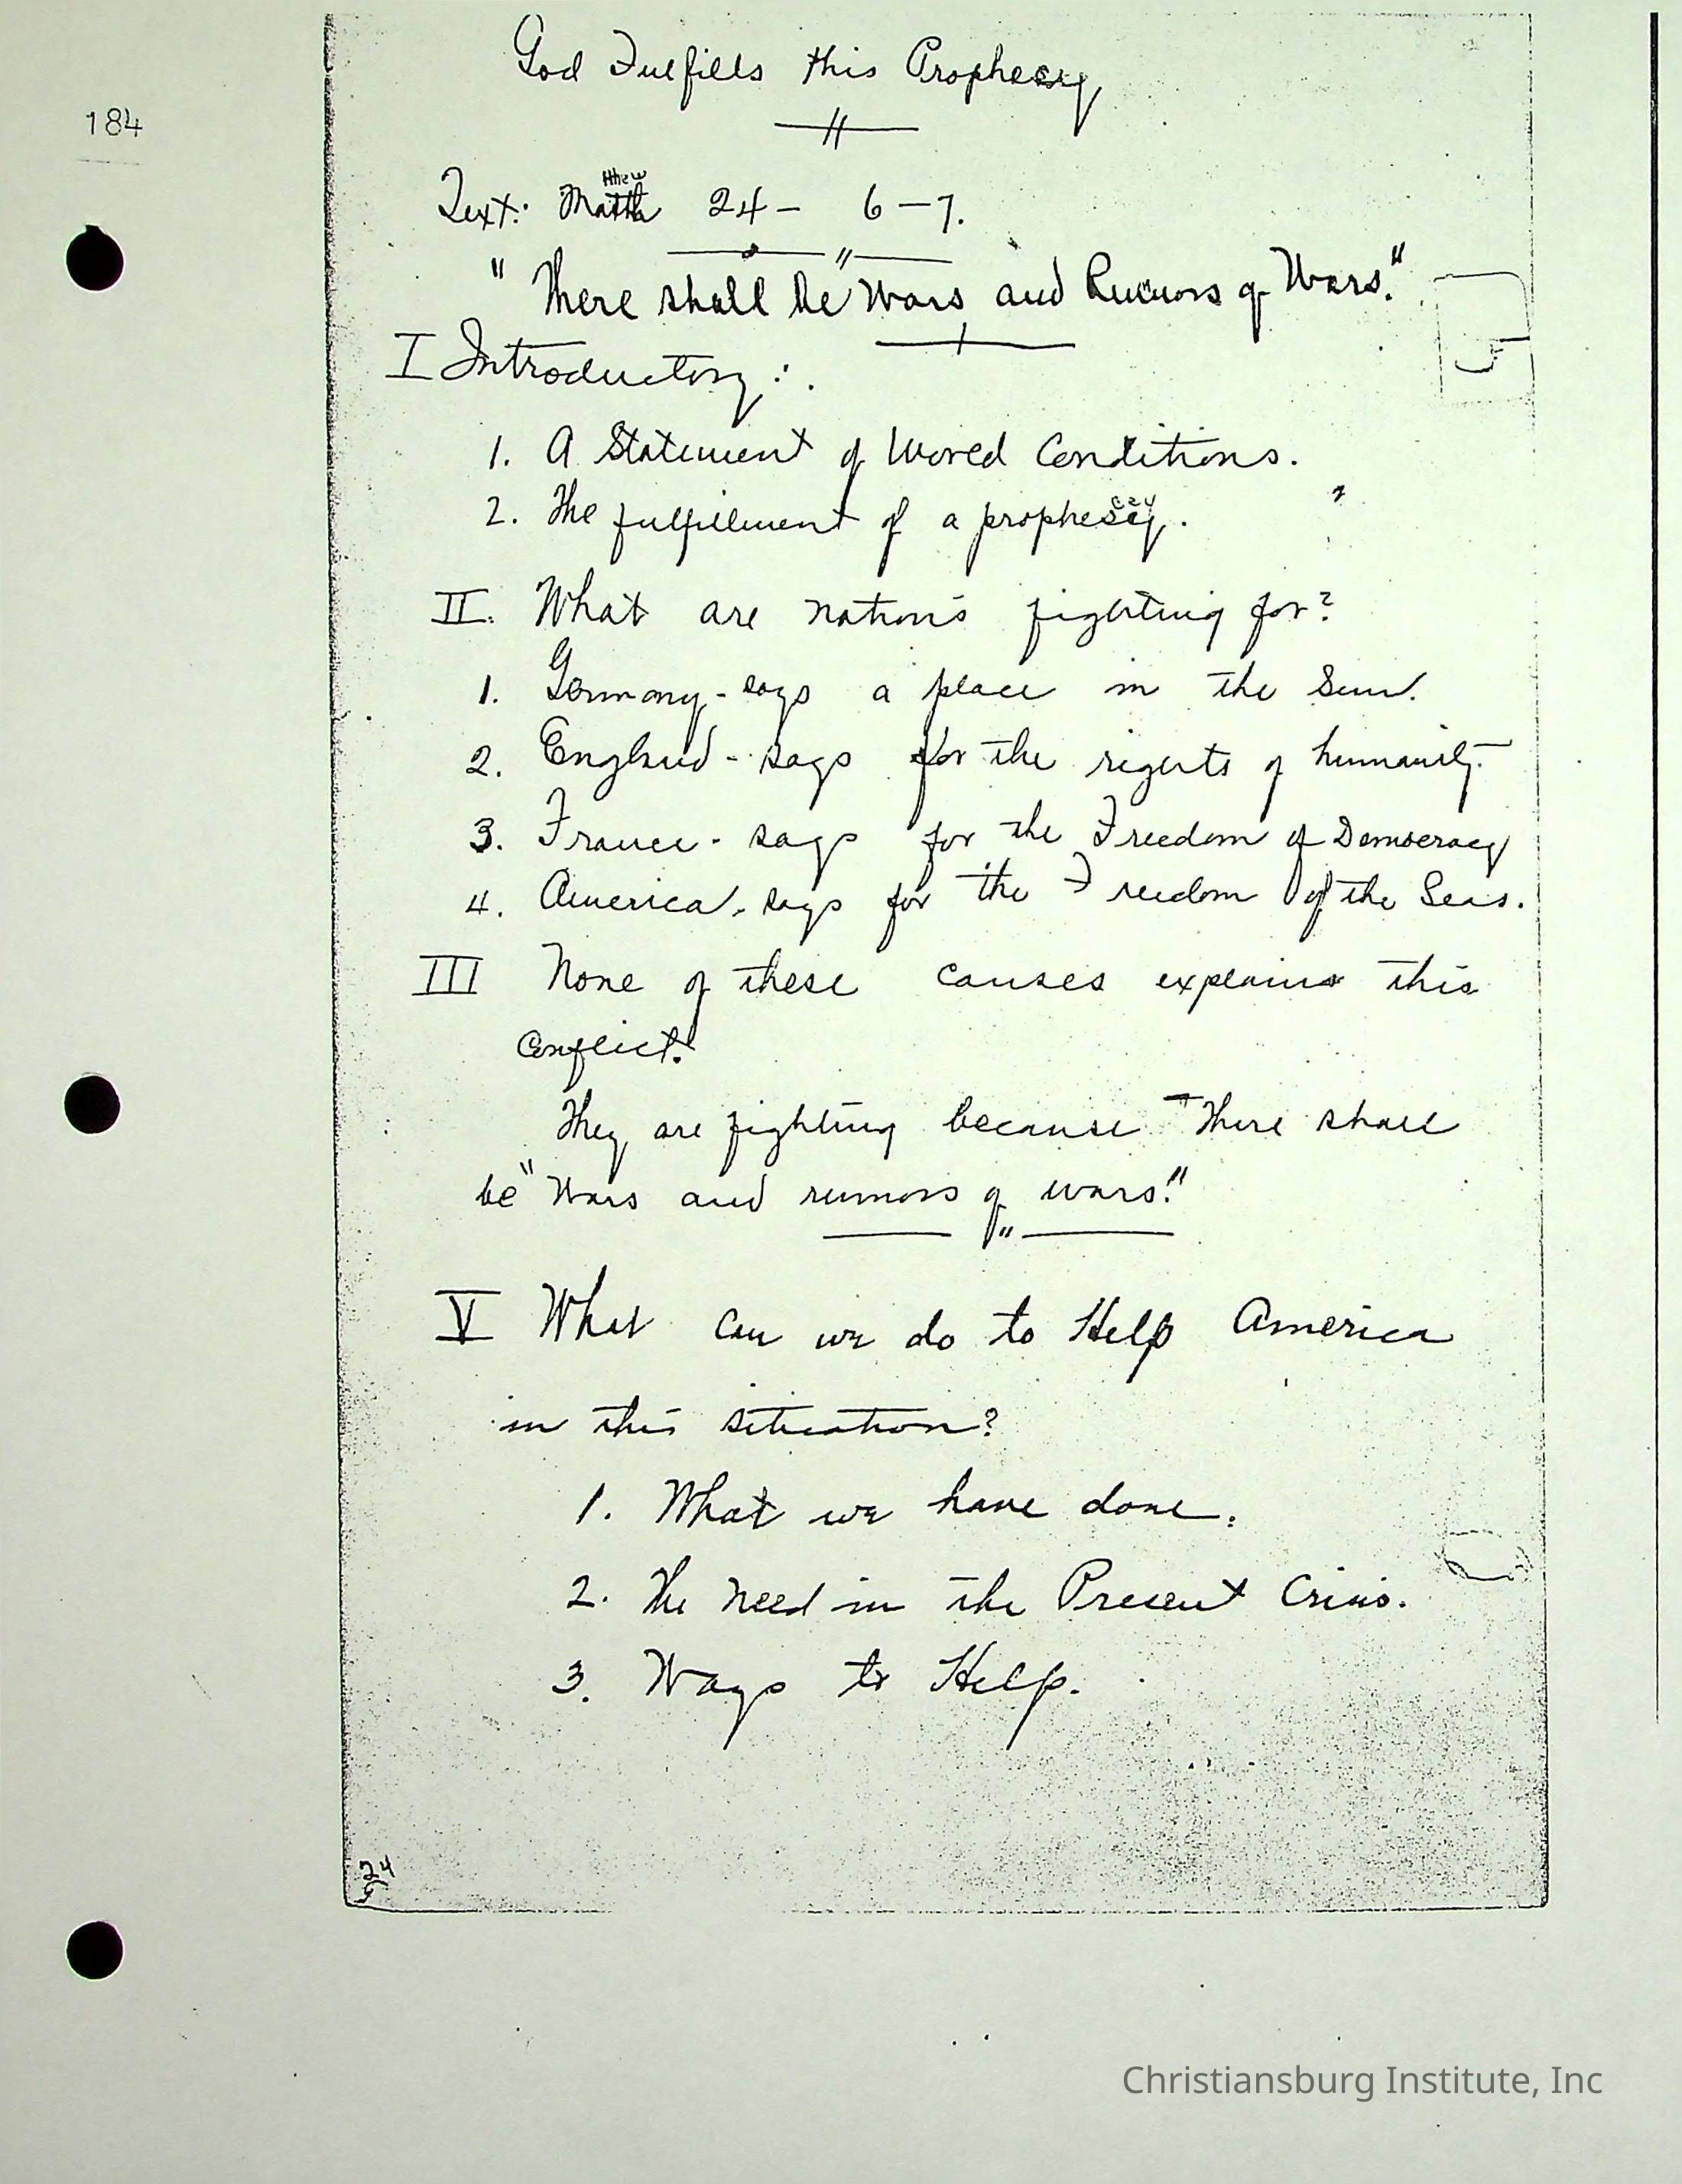 God Fulfills this Prophecy
184
Text: Matthew 24 - 6-7.
"There shall be "Wars and Rumors of Wars."
I Introductory:
1. A Statement of World Conditions.
2. The fulfillment of a prophesy.
II. What are nations fighting for?
1. Germany - says a place in the Sun.
2. England - says for the rights of humanity.
3. France - says for the Freedom of Democracy
4. America - says for the Freedom of the Seas.
III None of these causes explains this
Conflict.
They are fighting because There shall
be "Wars and rumors of wars."
V What can we do to Help America
in this situation?
1. What we have done.
2. The need in the Present Crisis.
3. Ways to Help.
24
Christiansburg Institute, Inc